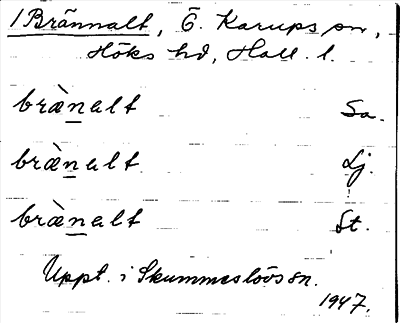 1 Brännalt, Ö. Karups sn,
Höks hd, Hall. l.
bræ̀nalt Sa.
bræ̀nalt Lj.
bræ̀nalt St.
Uppt. i Skummeslövs sn.
1947.